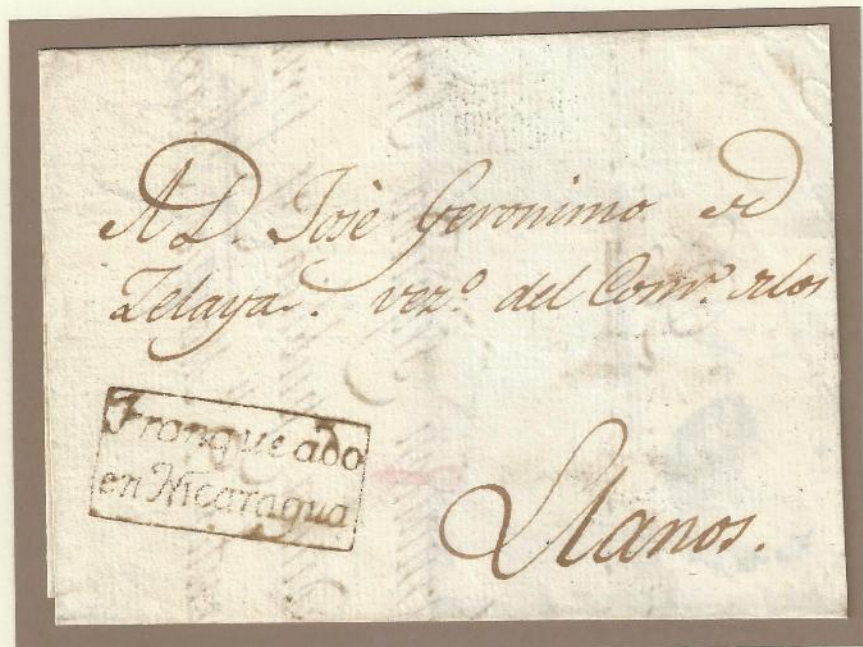 A D. Josè Geronimo de
Zelaya. vez.º del Com.º delos
Llanos.
Franqueado
en Nicaragua